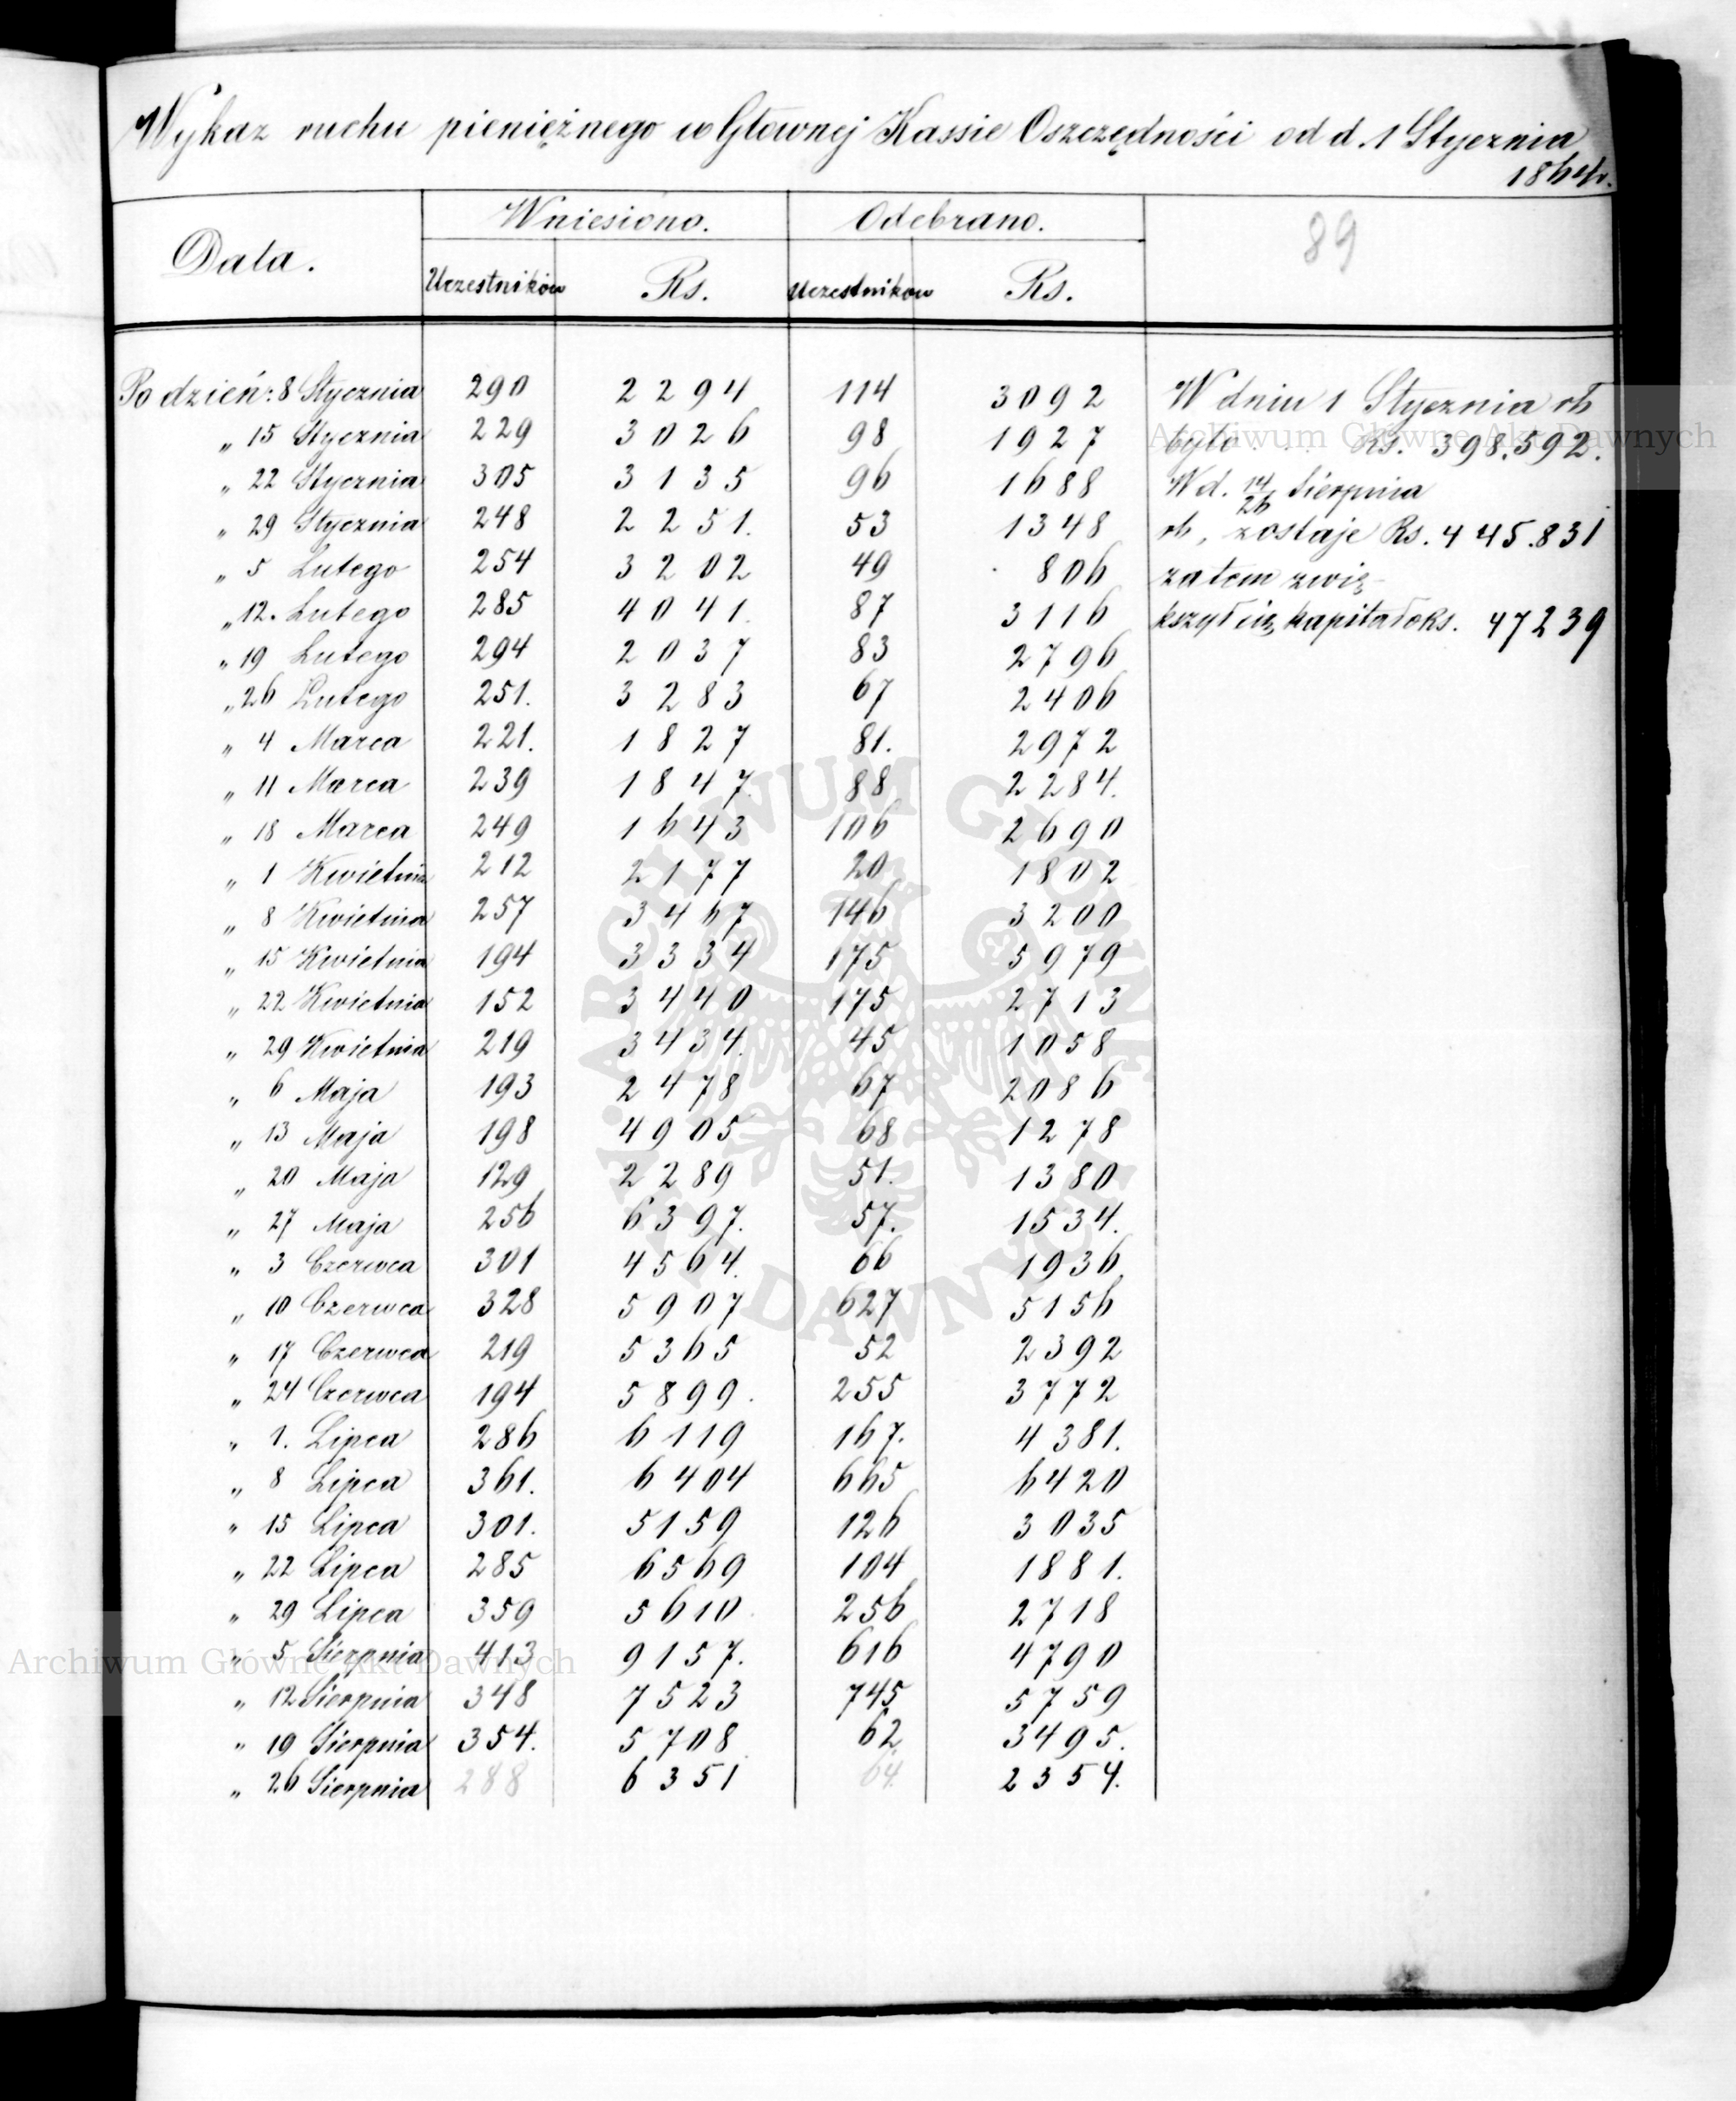 Wykaz ruchu pieniężnego w Głównej Kassie Oszczędności od d. 1 Stycznia
1864r.
89
Data. Wniesiono. Odebrano.
Uczestników Rs. Uczestników Rs.
Po dzień: 8 Stycznia 290 2294 114 3092 W dniu 1 Stycznia rb
„ 15 Stycznia 229 3026 98 1927 było . . . Rs. 398.592.
„ 22 Stycznia 305 3135 96 1688 W d. 14/26 Sierpnia
„ 29 Stycznia 248 2251. 53 1348 rb, zostaje Rs. 445.831
„ 5 Lutego 254 3202 49 806 zatem zwię-
„ 12. Lutego 285 4041. 87 3116 kszył się kapitał o Rs. 47239
„ 19 Lutego 294 2037 83 2796
„ 26 Lutego 251. 3283 67 2406
„ 4 Marca 221. 1827 81. 2972
„ 11 Marca 239 1847. 88 2284.
„ 18 Marca 249 1643 106 2690
„ 1 Kwietnia 212 2177 20 1802
„ 8 Kwietnia 257 3467 146 3200
„ 15 Kwietnia 194 3334 175 5979
„ 22 Kwietnia 152 3440 175 2713
„ 29 Kwietnia 219 3434. 45 1058
„ 6 Maja 193 2478 67 2086
„ 13 Maja 198 4905 68 1278
„ 20 Maja 129 2289 51. 1380
„ 27 Maja 256 6397. 57. 1534.
„ 3 Czerwca 301 4564. 66 1936
„ 10 Czerwca 328 5907 627 5156
„ 17 Czerwca 219 5365 52 2392
„ 24 Czerwca 194 5899. 255 3772
„ 1. Lipca 286 6119 167. 4381.
„ 8 Lipca 361. 6404 665 6420
„ 15 Lipca 301. 5159 126 3035
„ 22 Lipca 285 6569 104 1881.
„ 29 Lipca 359 5610 256 2718
„ 5 Sierpnia 413 9157. 616 4790
„ 12 Sierpnia 348 7523 745 5759
„ 19 Sierpnia 354. 5708 62 3495.
„ 26 Sierpnia 288 6351 64. 2354.
Archiwum Główne Akt Dawnych
Archiwum Główne Akt Dawnych
ARCHIWUM GŁÓWNE AKT DAWNYCH